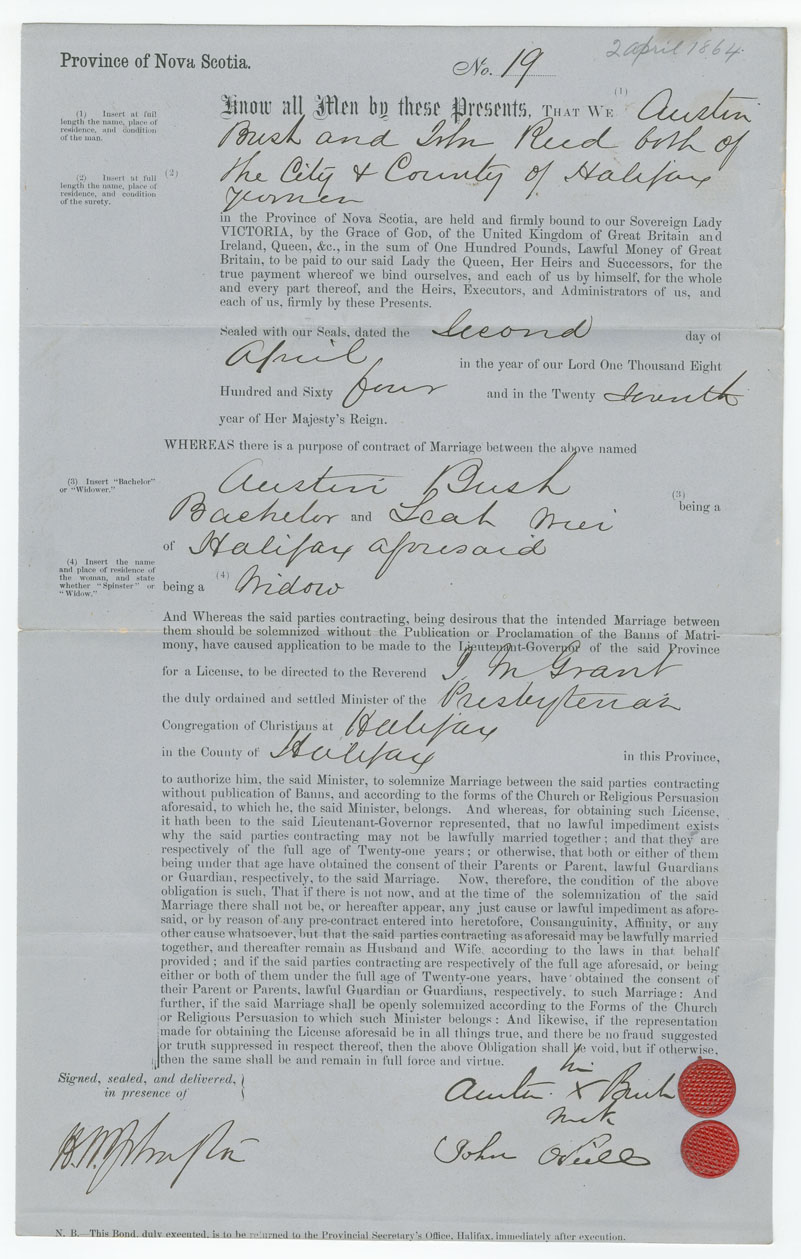 2 april 1864.
Province of Nova Scotia.
No. 19
(1)
Know all Men by these Presents, THAT WE Austin
(1) Insert at full
length the name, place of
residence, and condition
of the man.
Bush and John Reed both of
(2)
the City & County of Halifax
(2) Insert at full
length the name, place of
residence, and condition
of the surety.
yomen
in the Province of Nova Scotia, are held and firmly bound to our Sovereign Lady
VICTORIA, by the Grace of GOD, of the United Kingdom of Great Britain and
Ireland, Queen, &c., in the sum of One Hundred Pounds, Lawful Money of Great
Britain, to be paid to our said Lady the Queen, Her Heirs and Successors, for the
true payment whereof we bind ourselves, and each of us by himself, for the whole
and every part thereof, and the Heirs, Executors, and Administrators of us, and
each of us, firmly by these Presents.
Sealed with our Seals, dated the Second day of
April in the year of our Lord One Thousand Eight
Hundred and Sixty four and in the Twenty Seventh
year of Her Majesty's Reign.
WHEREAS there is a purpose of contract of Marriage between the above named
Austin Bush
(3) Insert "Bachelor"
or "Widower."
(3)
being a
Bachelor and Leah Wier
of Halifax aforesaid
(4) Insert the name
and place of residence of
the woman, and state
whether "Spinster" or
"Widow."
being a (4) Widow
And Whereas the said parties contracting, being desirous that the intended Marriage between
them should be solemnized without the Publication or Proclamation of the Banns of Matri-
mony, have caused application to be made to the Lieutenant-Governor of the said Province
for a License, to be directed to the Reverend J M Grant
the duly ordained and settled Minister of the Presbyterian
Congregation of Christians at Halifax
in the County of Halifax in this Province,
to authorize him, the said Minister, to solemnize Marriage between the said parties contracting
without publication of Banns, and according to the forms of the Church or Religious Persuasion
aforesaid, to which he, the said Minister, belongs. And whereas, for obtaining such License,
it hath been to the said Lieutenant-Governor represented, that no lawful impediment exists
why the said parties contracting may not be lawfully married together; and that they are
respectively of the full age of Twenty-one years; or otherwise, that both or either of them
being under that age have obtained the consent of their Parents or Parent, lawful Guardians
or Guardian, respectively, to the said Marriage. Now, therefore, the condition of the above
obligation is such, That if there is not now, and at the time of the solemnization of the said
Marriage there shall not be, or hereafter appear, any just cause or lawful impediment as afore-
said, or by reason of any pre-contract entered into heretofore, Consanguinity, Affinity, or any
other cause whatsoever, but that the said parties contracting as aforesaid may be lawfully married
together, and thereafter remain as Husband and Wife, according to the laws in that behalf
provided; and if the said parties contracting are respectively of the full age aforesaid, or being
either or both of them under the full age of Twenty-one years, have obtained the consent of
their Parent or Parents, lawful Guardian or Guardians, respectively, to such Marriage: And
further, if the said Marriage shall be openly solemnized according to the Forms of the Church
or Religious Persuasion to which such Minister belongs: And likewise, if the representation
made for obtaining the License aforesaid be in all things true, and there be no fraud suggested
or truth suppressed in respect thereof, then the above Obligation shall be void, but if otherwise,
then the same shall be and remain in full force and virtue.
Signed, sealed, and delivered,
in presence of
his
Austin X Bush
mark
John
N. B.—This Bond, duly executed, is to be returned to the Provincial Secretary's Office, Halifax, immediately after execution.